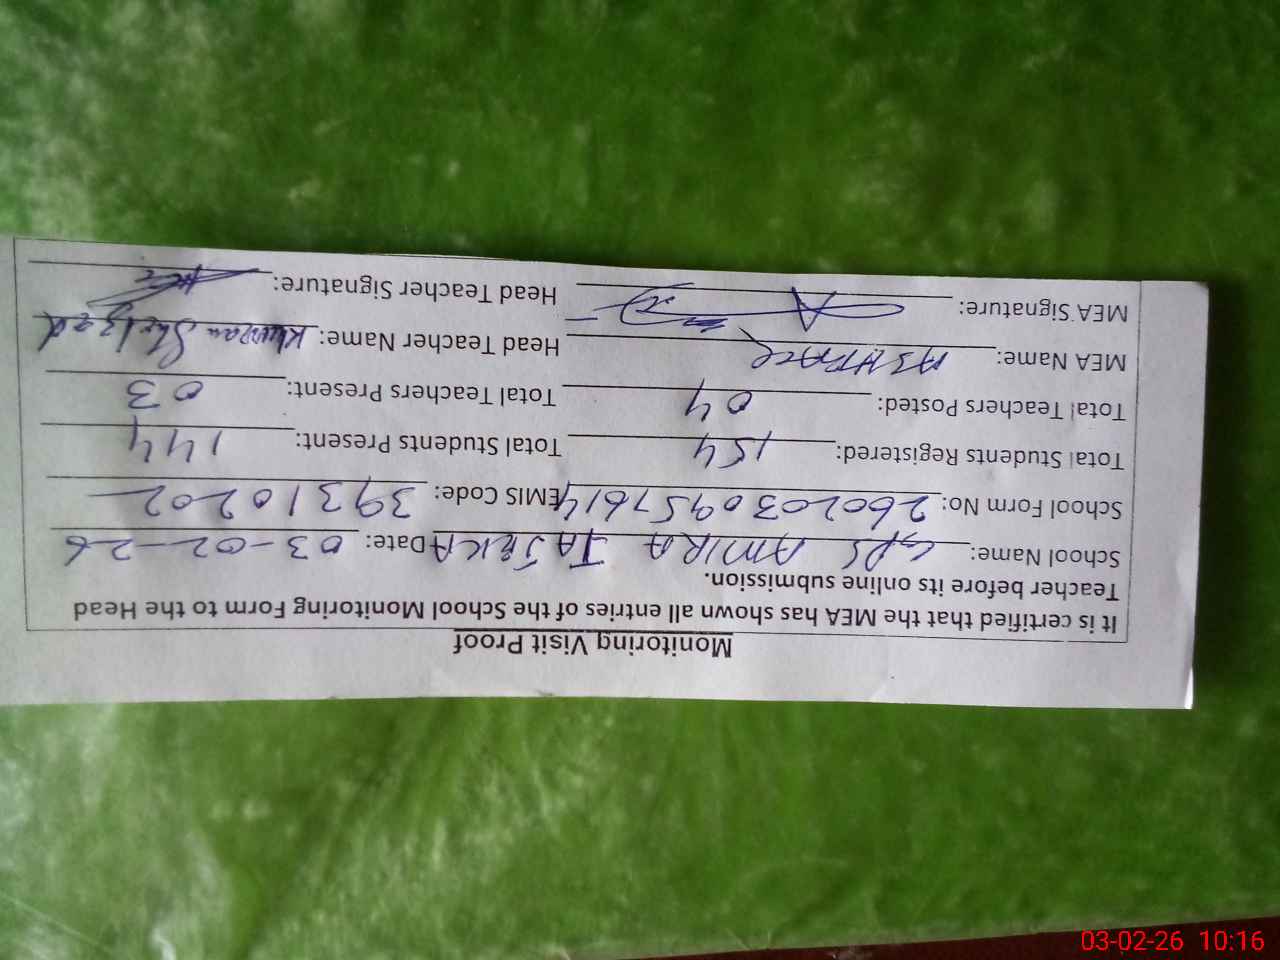 Monitoring Visit Proof
It is certified that the MEA has shown all entries of the School Monitoring Form to the Head
Teacher before its online submission.
School Name: GPS AMIRA Date: 03-02-26
School Form No: 26020309457614 EMIS Code: 39310202
Total Students Registered: 154 Total Students Present: 144
Total Teachers Posted: 04 Total Teachers Present: 03
MEA Name: Head Teacher Name: Khurram Shehzad
MEA Signature: Head Teacher Signature:
03-02-26 10:16